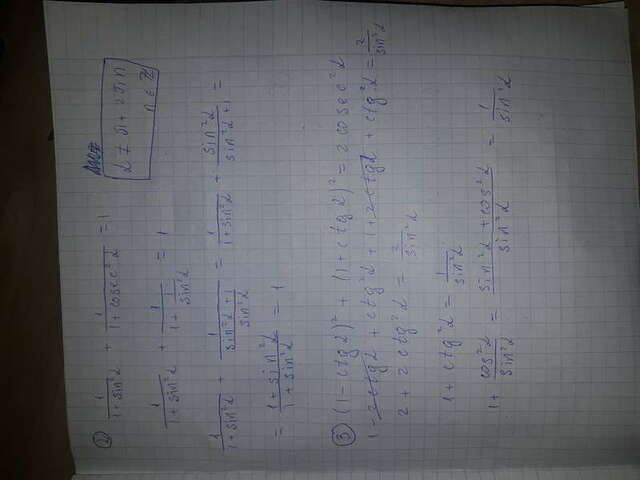 ② 1/(1+sin²α) + 1/(1+cosec²α) = 1
α ≠ π + 2πn
n ∈ Z
1/(1+sin²α) + 1/(1+1/sin²α) = 1
1/(1+sin²α) + 1/((sin²α+1)/sin²α) = 1/(1+sin²α) + sin²α/(sin²α+1) =
= (1+sin²α)/(1+sin²α) = 1
③ (1-ctgα)² + (1+ctgα)² = 2cosec²α
1-2ctgα + ctg²α + 1+2ctgα + ctg²α = 2/sin²α
2 + 2ctg²α = 2/sin²α
1 + ctg²α = 1/sin²α
1 + cos²α/sin²α = (sin²α + cos²α)/sin²α = 1/sin²α